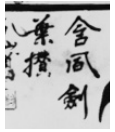 含風劍
葉攢